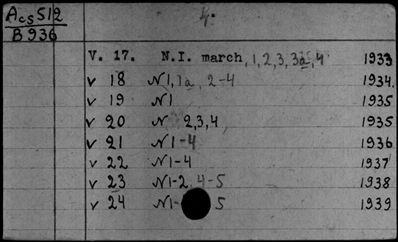 Acs 512
B 936
4.
V. 17. N.I. march, 1, 2, 3, 3a, 4 1933
v 18 N1, 1a, 2-4 1934.
v 19 N1 1935
v 20 N 2,3,4 1935
v 21 N1-4 1936
v 22 N1-4 1937
v 23 N1-2, 4-5 1938
v 24 N1- 5 1939